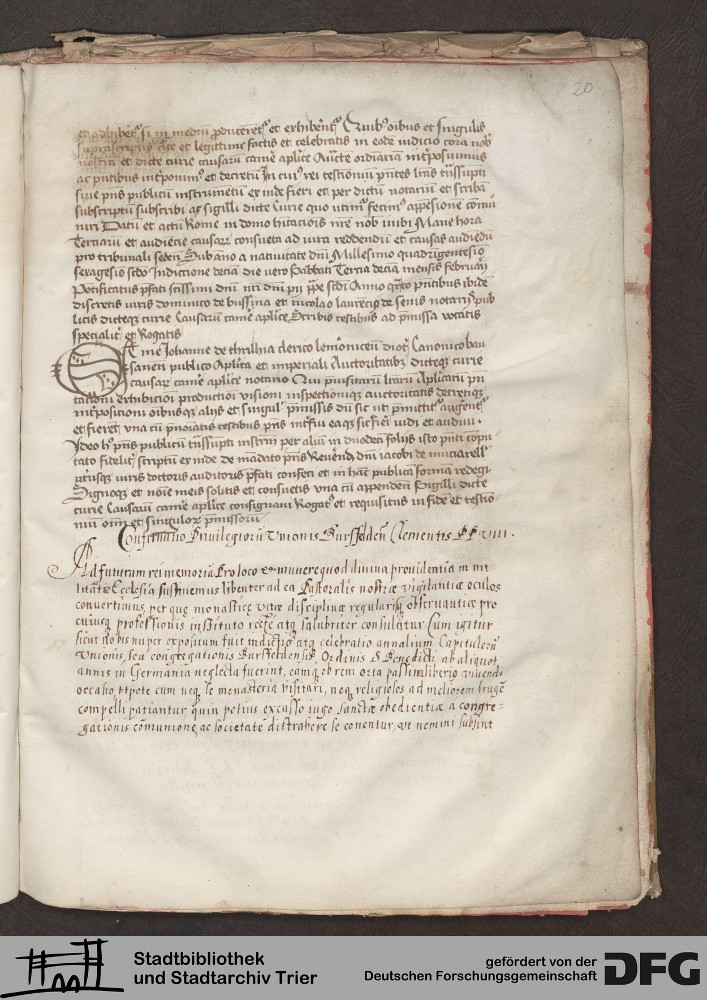 20
et exhibent Quibus oibus et singulis
rite et legittime factis et celebratis in eode iudicio cora nob
et dicte curie causaru came aplice Aucte ordinaria interposuimus
ac pntibus interponimus et decretu In cuius rei testimoniu pntes lras
siue pns publicu instrumetu ex inde fieri et per dictu notariu et scriba
subscriptu subscribi ac sigilli dicte Curie quo utimur fecimus appensione comu
niri Datu et actu Rome in domo hitaciois nre nob inibi Mane hora
Terciaru et audiecie causaru consueta ad iura reddendu et causas audiedu
pro tribunali seden Sub ano a natiuitate dni Millesimo quadringentesio
sexagesio scdo Indictione decia die vero sabbati Tercia decia mensis februarij
Potificatus pfati scissimi dni nri dni pij ppe scdi Anno quarto pntibus ibide
discretis viris dominico de bussina et nicolao laurecij de senis notarijs pub
licis dicteq curie Causaru came aplice Scribis testibus ad pmissa vocatis
specialiter et Rogatis
Et me Iohanne de clerico lemouiceu dioc Canonico
publico Aplica et imperiali Auctoritatibus dicteq curie
causaru came aplice notario Qui lraru Aplicaru
exhibicioi productioi visioni inspectioniq auctoritatis decretiq
interpositioni oibusq alijs et singulis pmissis du sic ut pmittitur agerentur
et fierent una cu pnoiatis testibus pns interfui eaq sic fieri vidi et audiui
Ideo hoc pns publicu transsupti instrm per aliu in duodecim folijs isto
tato fideliter scriptu ex inde de madato pfati Reuendi dni iacobi de mutiarell
utriusq iuris doctoris auditoris pfati confeci et in hanc publica forma redegi
Signoq et noie meis solitis et consuetis una cu appensione Sigilli dicte
curie Causaru came aplice consignaui Rogatus et requisitus in fide et testio
niu oim et singulor pmissoru
Confirmatio Priuilegioru Vnionis Bursfelden Clementis PP VIII.
Ad futuram rei memoria Pro loco et munere quod diuina prouidentia in mi
litate Ecclesia sustinemus libenter ad ea Pastoralis nostræ vigilantiæ oculos
conuertimus, per quę monasticę vitæ disciplinæ regularisq obseruantiæ pro
cuiusq professionis instituto recte atq salubriter consulatur. Cum igitur
sicut nobis nuper expositum fuit indictio atq celebratio annalium Capituloru
Vnionis, seu congregationis Bursfeldensis Ordinis S Benedicti ab aliquot
annis in Germania neglecta fuerint, eamq ob rem orta passim liberio viuendi
occasio, vtpote cum neq se monasteria visitari, neq religiosos ad meliorem fruge
compelli patiantur, quin potius excusso iugo sanctæ obedientiæ a congre=
gationis comunione, ac societate distrahere se conentur, vt nemini subsint
Stadtbibliothek
und Stadtarchiv Trier
gefördert von der
Deutschen Forschungsgemeinschaft
DFG